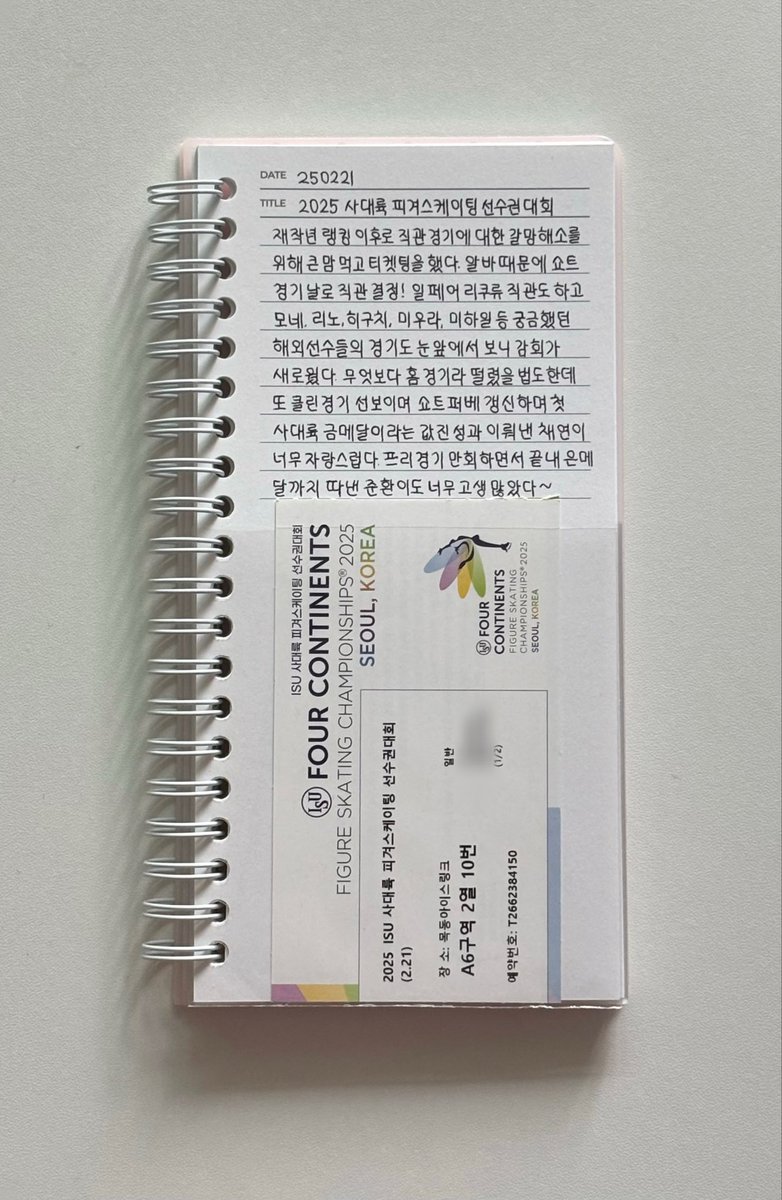 DATE 250221
TITLE 2025 사대륙 피겨스케이팅 선수권대회
재작년 랭킹 이후로 직관 경기에 대한 갈망해소를
위해 큰맘 먹고 티켓팅을 했다. 알바 때문에 쇼트
경기 날로 직관 결정! 일 페어 리쿠류 직관도 하고
모네, 리노, 히구치, 미우라, 미하일 등 궁금했던
해외선수들의 경기도 눈 앞에서 보니 감회가
새로웠다. 무엇보다 홈 경기라 떨렸을 법도 한데
또 클린 경기 선보이며 쇼트 퍼베 갱신하며 첫
사대륙 금메달이라는 값진 성과 이뤄낸 채연이
너무 자랑스럽다. 프리경기 만회하면서 끝내 은메
달까지 따낸 준환이도 너무 고생 많았다~
ISU 사대륙 피겨스케이팅 선수권대회
ISU FOUR CONTINENTS
FIGURE SKATING CHAMPIONSHIPS® 2025
SEOUL, KOREA
ISU FOUR
CONTINENTS
FIGURE SKATING
CHAMPIONSHIPS® 2025
SEOUL, KOREA
2025 ISU 사대륙 피겨스케이팅 선수권대회
(2.21)
장 소: 목동아이스링크
일반
A6구역 2열 10번
(1/2)
예약번호: T2662384150